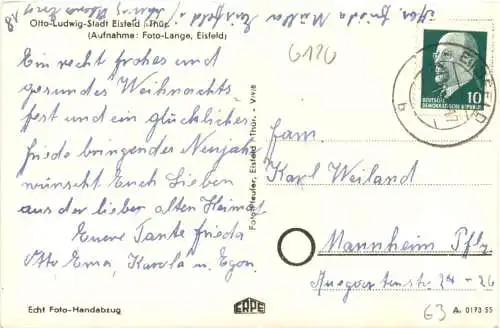 Abs. Frieda Müller Eisfeld i/Thür.
Otto-Ludwig-Stadt Eisfeld i. Thür.
(Aufnahme: Foto-Lange, Eisfeld)
Ein recht frohes und
gesundes Weihnachts
fest und ein glückliches
friede bringendes Neujahr
wünscht Euch Lieben
aus der lieben alten Heimat
Euere Tante Frieda
Otto Erna, Karola u. Egon
Echt Foto-Handabzug
Foto-Heufer, Eisfeld i. Thür. - V
ERPE
6120
EISFELD
b
10
DEUTSCHE
DEMOKRATISCHE REPUBLIK
Fam.
Karl Weiland
Mannheim Pflz
24-26
63
A. 0173 55